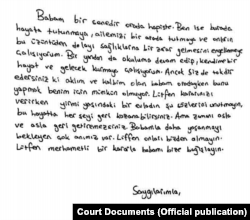 Babam bir senedir orada hapiste. Ben ise burada
hayata tutunmaya, ailemizi bir arada tutmaya ve onların
bu üzüntüden dolayı sağlıklarına bir zarar gelmesini engellemeye
çalışıyorum. Bir yandan da okuluma devam edip, kendime bir
hayat ve gelecek kurmaya çalışıyorum. Ancak siz de takdir
edersiniz ki aklım ve kalbim olan babam oradayken bunu
yapmak benim için mümkün olmuyor. Lütfen kararınızı
verirken yirmi yaşındaki bir evladın şu sözlerini unutmayın,
bu hayatta her şeyi geri kazanabilirsiniz. Ama zamanı asla
ve asla geri getiremezsiniz. Babamla daha yaşanmayı
bekleyen çok anımız var. Lütfen onları bizden almayın.
Lütfen merhametli bir kararla babamı bize bağışlayın.
Saygılarımla,
Court Documents (Official publication)